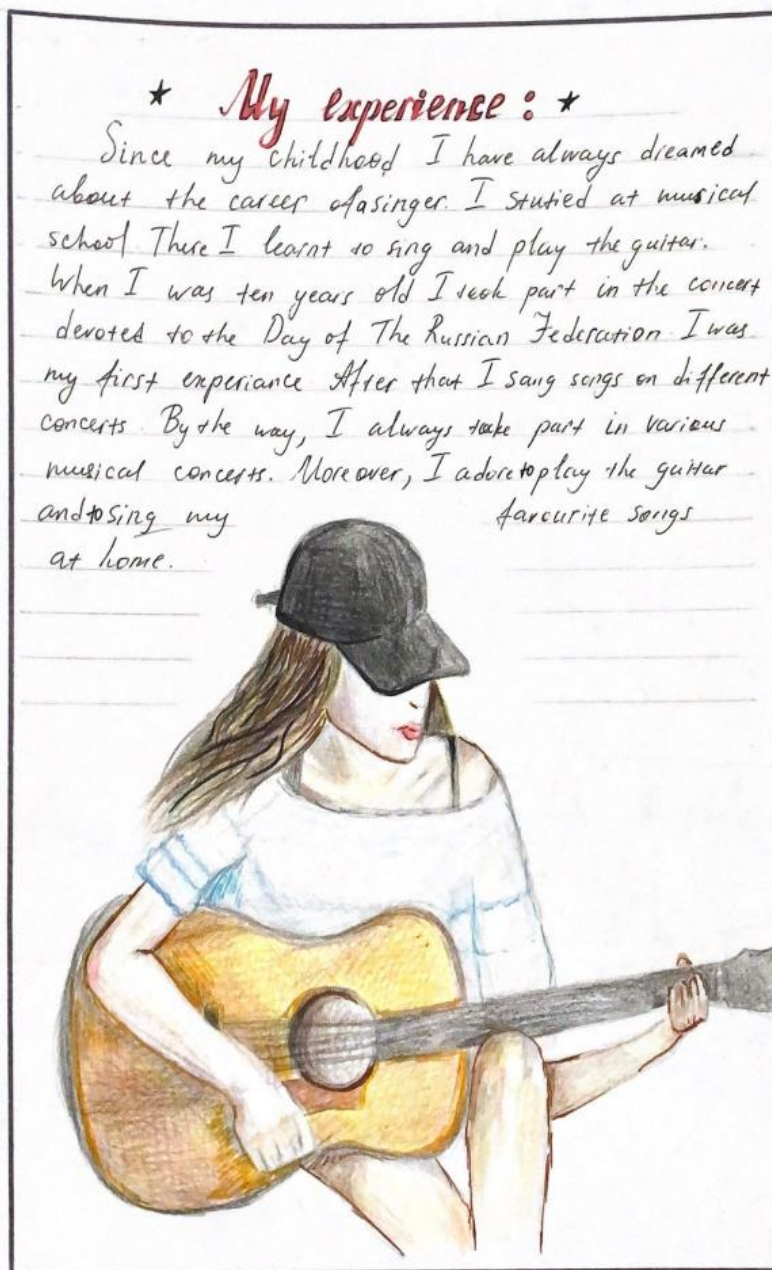 * My experience: *
Since my childhood I have always dreamed
about the career of a singer. I studied at musical
school. There I learnt to sing and play the guitar.
When I was ten years old I took part in the concert
devoted to the Day of The Russian Federation. I was
my first experiance. After that I sang songs on different
concerts. By the way, I always take part in various
musical concerts. Moreover, I adore to play the guitar
and to sing my favourite songs
at home.